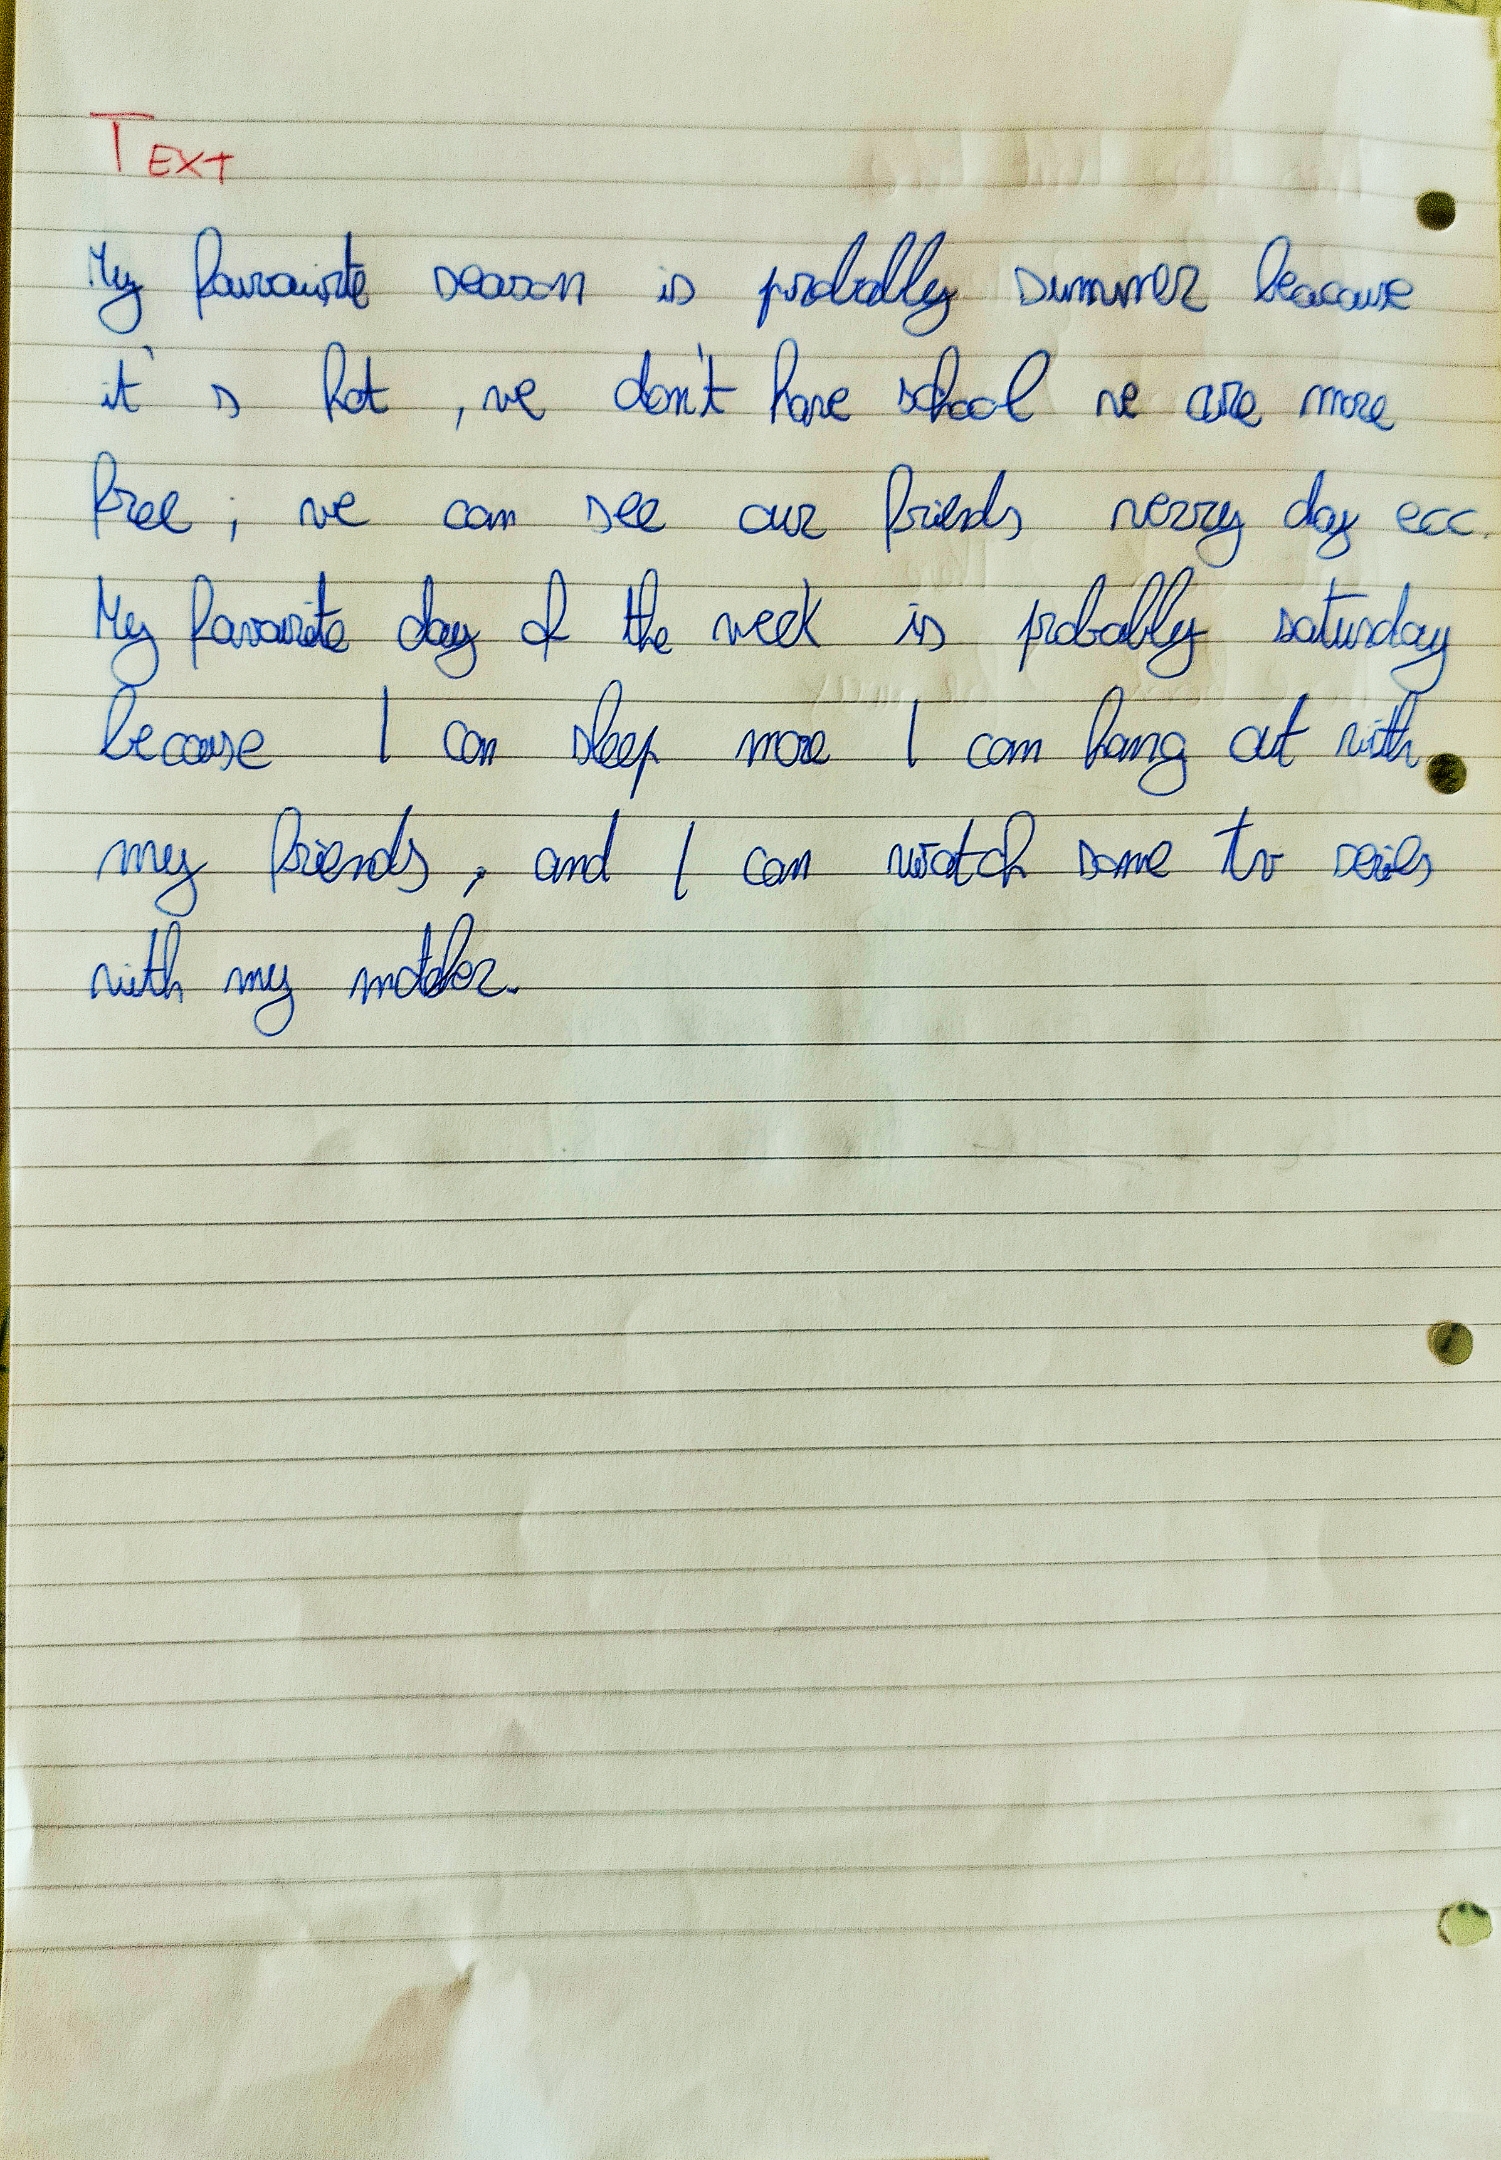 TEXT
My favourite season is probably summer beacause
it's hot, we don't have school we are more
free; we can see our friends verry day ecc.
My favourite day of the week is probably saturday
because I can sleep more I can hang out with
my friends, and I can watch some tv series
with my mother.